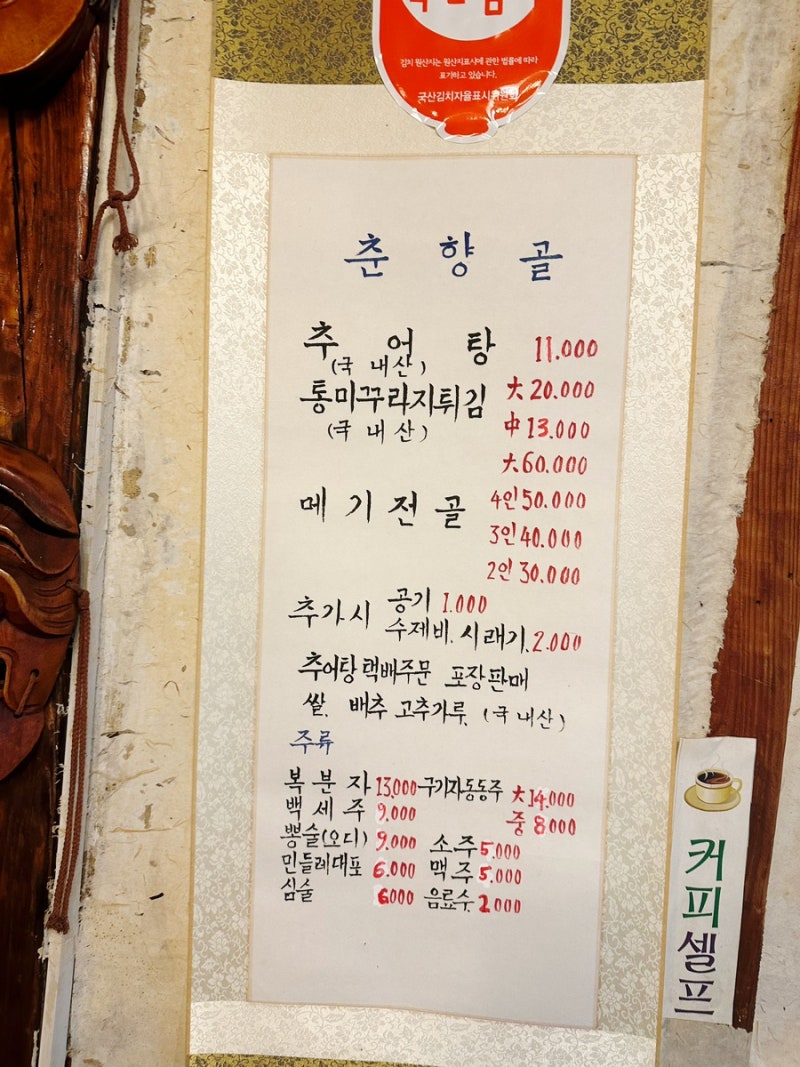 김치 원산지는 원산지표시에 관한 법률에 따라
표기하고 있습니다.
국산김치자율표시위원회
춘 향 골
추 어 탕 11.000
(국 내 산)
통미꾸라지튀김 大 20.000
(국 내 산) 中 13.000
大 60.000
메 기 전 골 4인 50.000
3인 40.000
2인 30.000
추가시 공기 1.000
수제비. 시래기. 2.000
추어탕 택배주문 포장판매
쌀. 배추 고추가루. (국 내산)
주류
복 분 자 13.000 구기자동동주 大 14.000
백 세 주 9.000 중 8000
뽕술(오디) 9.000 소주 5.000
민들레대포 6.000 맥주 5.000
심술 6000 음료수. 2.000
커피셀프